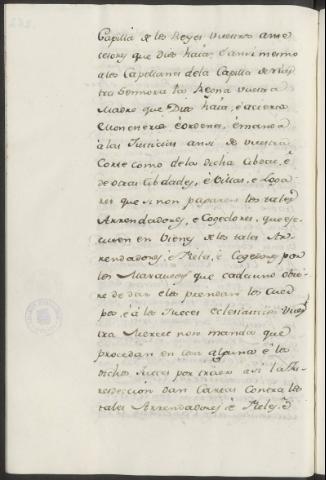 Capilla de los Reyes vuestros ante
cesores que Dios haia, è ansi mesmo
a los Capellanes de la Capilla de vues
tra Sennora la Reyna vuestra
Madre que Dios haia, è a cierta
Monenería è ordenes, è manda
à las Justicias ansi de vuestra
Corte como de la dicha Cibdat, è
de otras Cibdades, è Villas, è Loga
res que si non pagaren los tales
Arrendadores, è Cogedores, que ese
cuten en bienes de los tales Ar
rendadores, è Fieles, è Cogedores por
los Maravedis que cada uno obie
re de dar è los prendan los cuer
pos, è à los Jueces eclesiasticos vues
tra Merced non manda que
procedan en cosa alguna è los
dichos Jueces por traer asi la Ju
resdiccion dan Cartas contra los
tales Arrendadores è Fieles, è